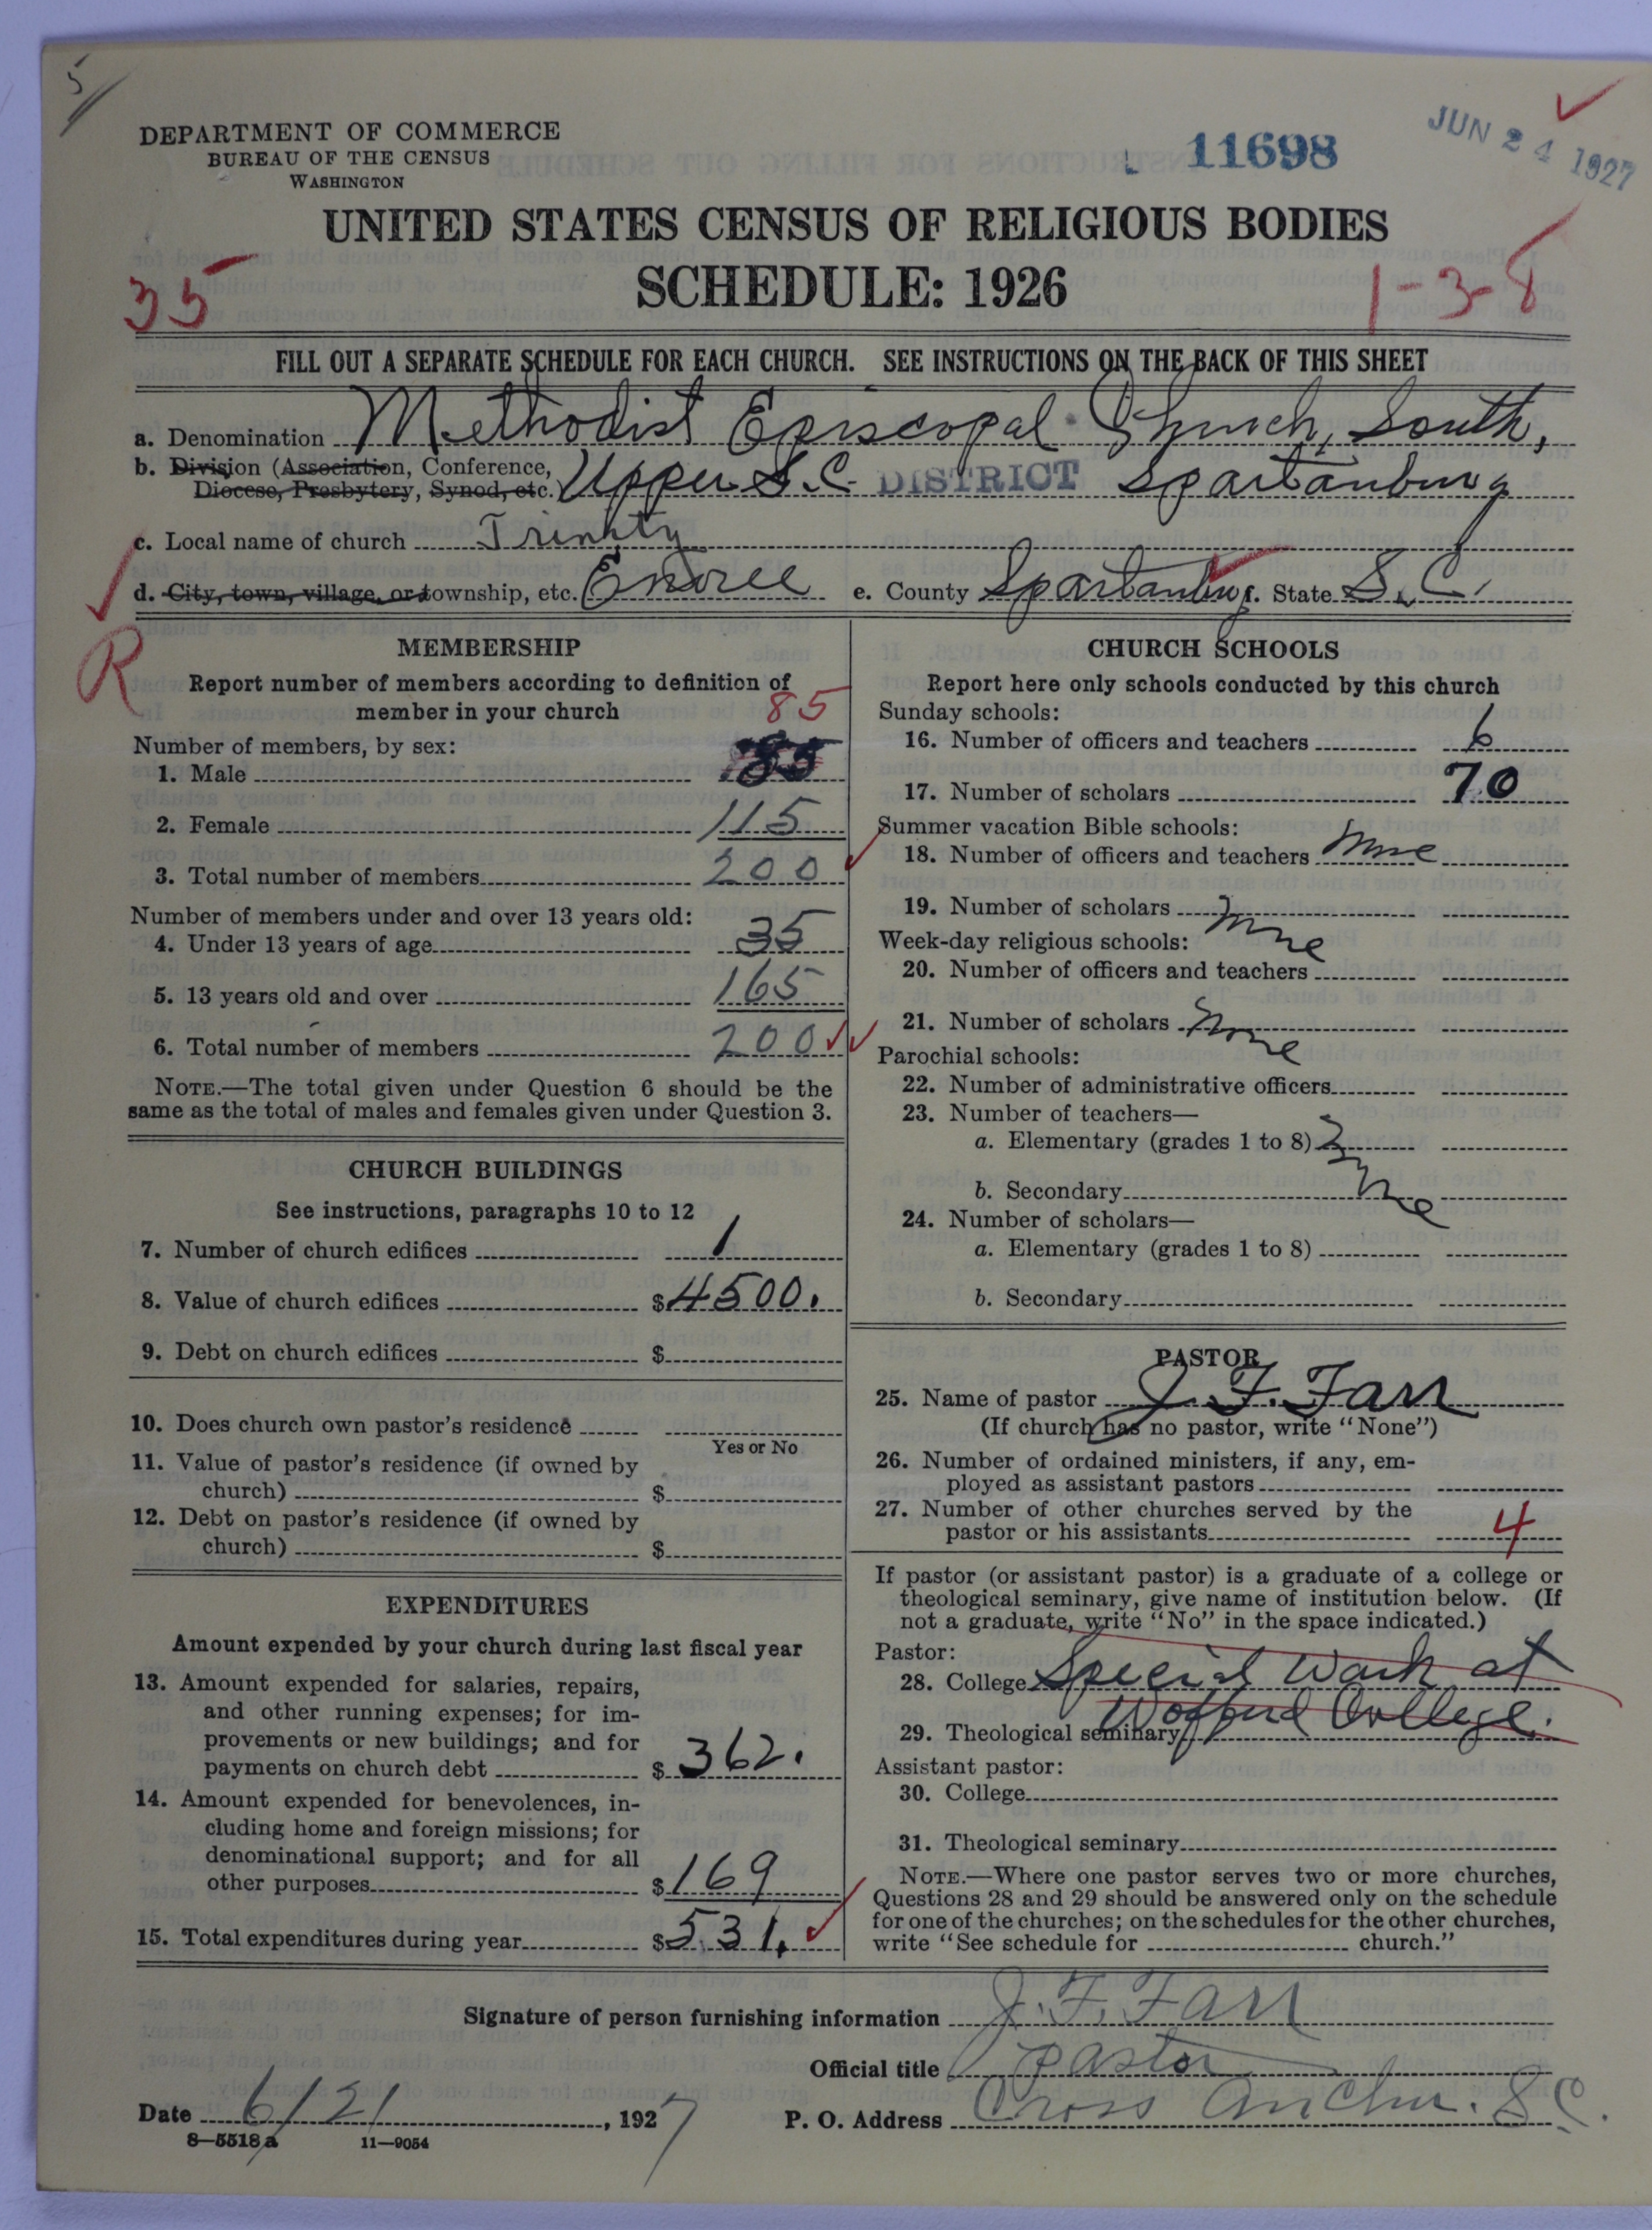 5
DEPARTMENT OF COMMERCE
BUREAU OF THE CENSUS
WASHINGTON
11698
JUN 24 1927
UNITED STATES CENSUS OF RELIGIOUS BODIES
SCHEDULE: 1926
35
1-3-8
FILL OUT A SEPARATE SCHEDULE FOR EACH CHURCH. SEE INSTRUCTIONS ON THE BACK OF THIS SHEET
a. Denomination Methodist Episcopal Church, South,
b. Division (Association, Conference, Diocese, Presbytery, Synod, etc.) Upper S.C. DISTRICT Spartanburg
c. Local name of church Trinity
d. City, town, village, or township, etc. Enoree e. County Spartanburg f. State S. C.
R
MEMBERSHIP
Report number of members according to definition of
member in your church
85
Number of members, by sex:
1. Male 85
2. Female 115
3. Total number of members 200
Number of members under and over 13 years old:
4. Under 13 years of age 35
5. 13 years old and over 165
6. Total number of members 200
NOTE.—The total given under Question 6 should be the
same as the total of males and females given under Question 3.
CHURCH BUILDINGS
See instructions, paragraphs 10 to 12
7. Number of church edifices 1
8. Value of church edifices $4500.
9. Debt on church edifices $
10. Does church own pastor's residence
Yes or No
11. Value of pastor's residence (if owned by
church) $
12. Debt on pastor's residence (if owned by
church) $
EXPENDITURES
Amount expended by your church during last fiscal year
13. Amount expended for salaries, repairs,
and other running expenses; for im-
provements or new buildings; and for
payments on church debt $362.
14. Amount expended for benevolences, in-
cluding home and foreign missions; for
denominational support; and for all
other purposes $169
15. Total expenditures during year $531.
CHURCH SCHOOLS
Report here only schools conducted by this church
Sunday schools:
16. Number of officers and teachers 6
17. Number of scholars 70
Summer vacation Bible schools:
18. Number of officers and teachers None
19. Number of scholars None
Week-day religious schools:
20. Number of officers and teachers
21. Number of scholars None
Parochial schools:
22. Number of administrative officers
23. Number of teachers—
a. Elementary (grades 1 to 8) None
b. Secondary
24. Number of scholars—
a. Elementary (grades 1 to 8)
b. Secondary
PASTOR
25. Name of pastor J. F. Farr
(If church has no pastor, write "None")
26. Number of ordained ministers, if any, em-
ployed as assistant pastors
27. Number of other churches served by the
pastor or his assistants 4
If pastor (or assistant pastor) is a graduate of a college or
theological seminary, give name of institution below. (If
not a graduate, write "No" in the space indicated.)
Pastor:
28. College Special Work at
29. Theological seminary Wofford College.
Assistant pastor:
30. College
31. Theological seminary
NOTE.—Where one pastor serves two or more churches,
Questions 28 and 29 should be answered only on the schedule
for one of the churches; on the schedules for the other churches,
write "See schedule for church."
Signature of person furnishing information J. F. Farr
Official title Pastor
Date 6/21, 1927 P. O. Address Cross Anchor. S. C.
8-5518a 11-9054